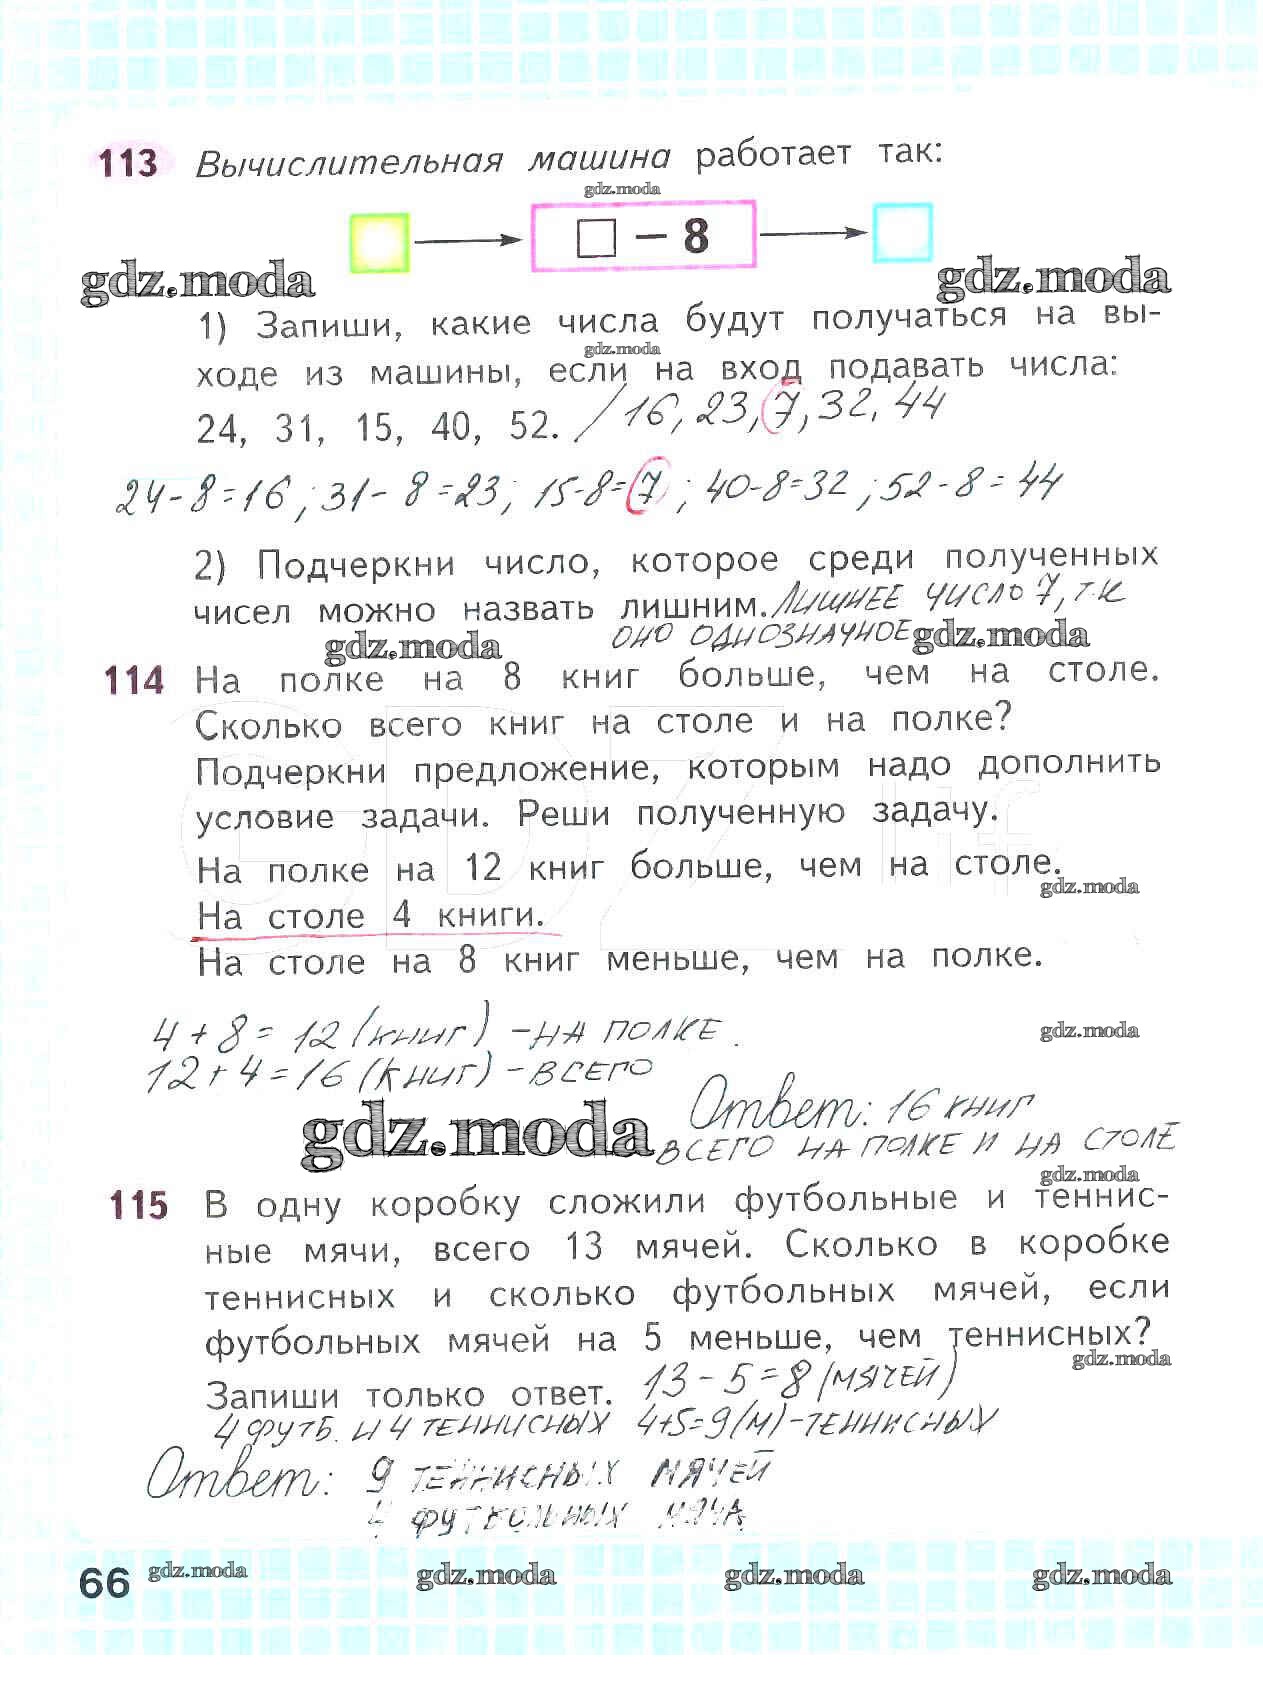 113 Вычислительная машина работает так:
gdz.moda
□ – 8
gdz.moda
gdz.moda
1) Запиши, какие числа будут получаться на вы-
gdz.moda
ходе из машины, если на вход подавать числа:
24, 31, 15, 40, 52. / 16, 23, 7, 32, 44
24-8=16; 31-8=23; 15-8=7; 40-8=32; 52-8=44
2) Подчеркни число, которое среди полученных
чисел можно назвать лишним. ЛИШНЕЕ ЧИСЛО 7, Т.К
ОНО ОДНОЗНАЧНОЕ
gdz.moda
gdz.moda
114 На полке на 8 книг больше, чем на столе.
Сколько всего книг на столе и на полке?
Подчеркни предложение, которым надо дополнить
условие задачи. Реши полученную задачу.
На полке на 12 книг больше, чем на столе.
gdz.moda
На столе 4 книги.
На столе на 8 книг меньше, чем на полке.
4+8=12 (книг) - НА ПОЛКЕ.
gdz.moda
12+4=16 (книг) - ВСЕГО
Ответ: 16 книг
gdz.moda
ВСЕГО НА ПОЛКЕ И НА СТОЛЕ
gdz.moda
115 В одну коробку сложили футбольные и теннис-
ные мячи, всего 13 мячей. Сколько в коробке
теннисных и сколько футбольных мячей, если
футбольных мячей на 5 меньше, чем теннисных?
gdz.moda
Запиши только ответ. 13-5=8 (МЯЧЕЙ)
4 ФУТБ. И 4 ТЕННИСНЫХ 4+5=9(м)-ТЕННИСНЫХ
Ответ: 9 ТЕННИСНЫХ МЯЧЕЙ
4 ФУТБОЛЬНЫХ МЯЧА
66 gdz.moda gdz.moda gdz.moda gdz.moda